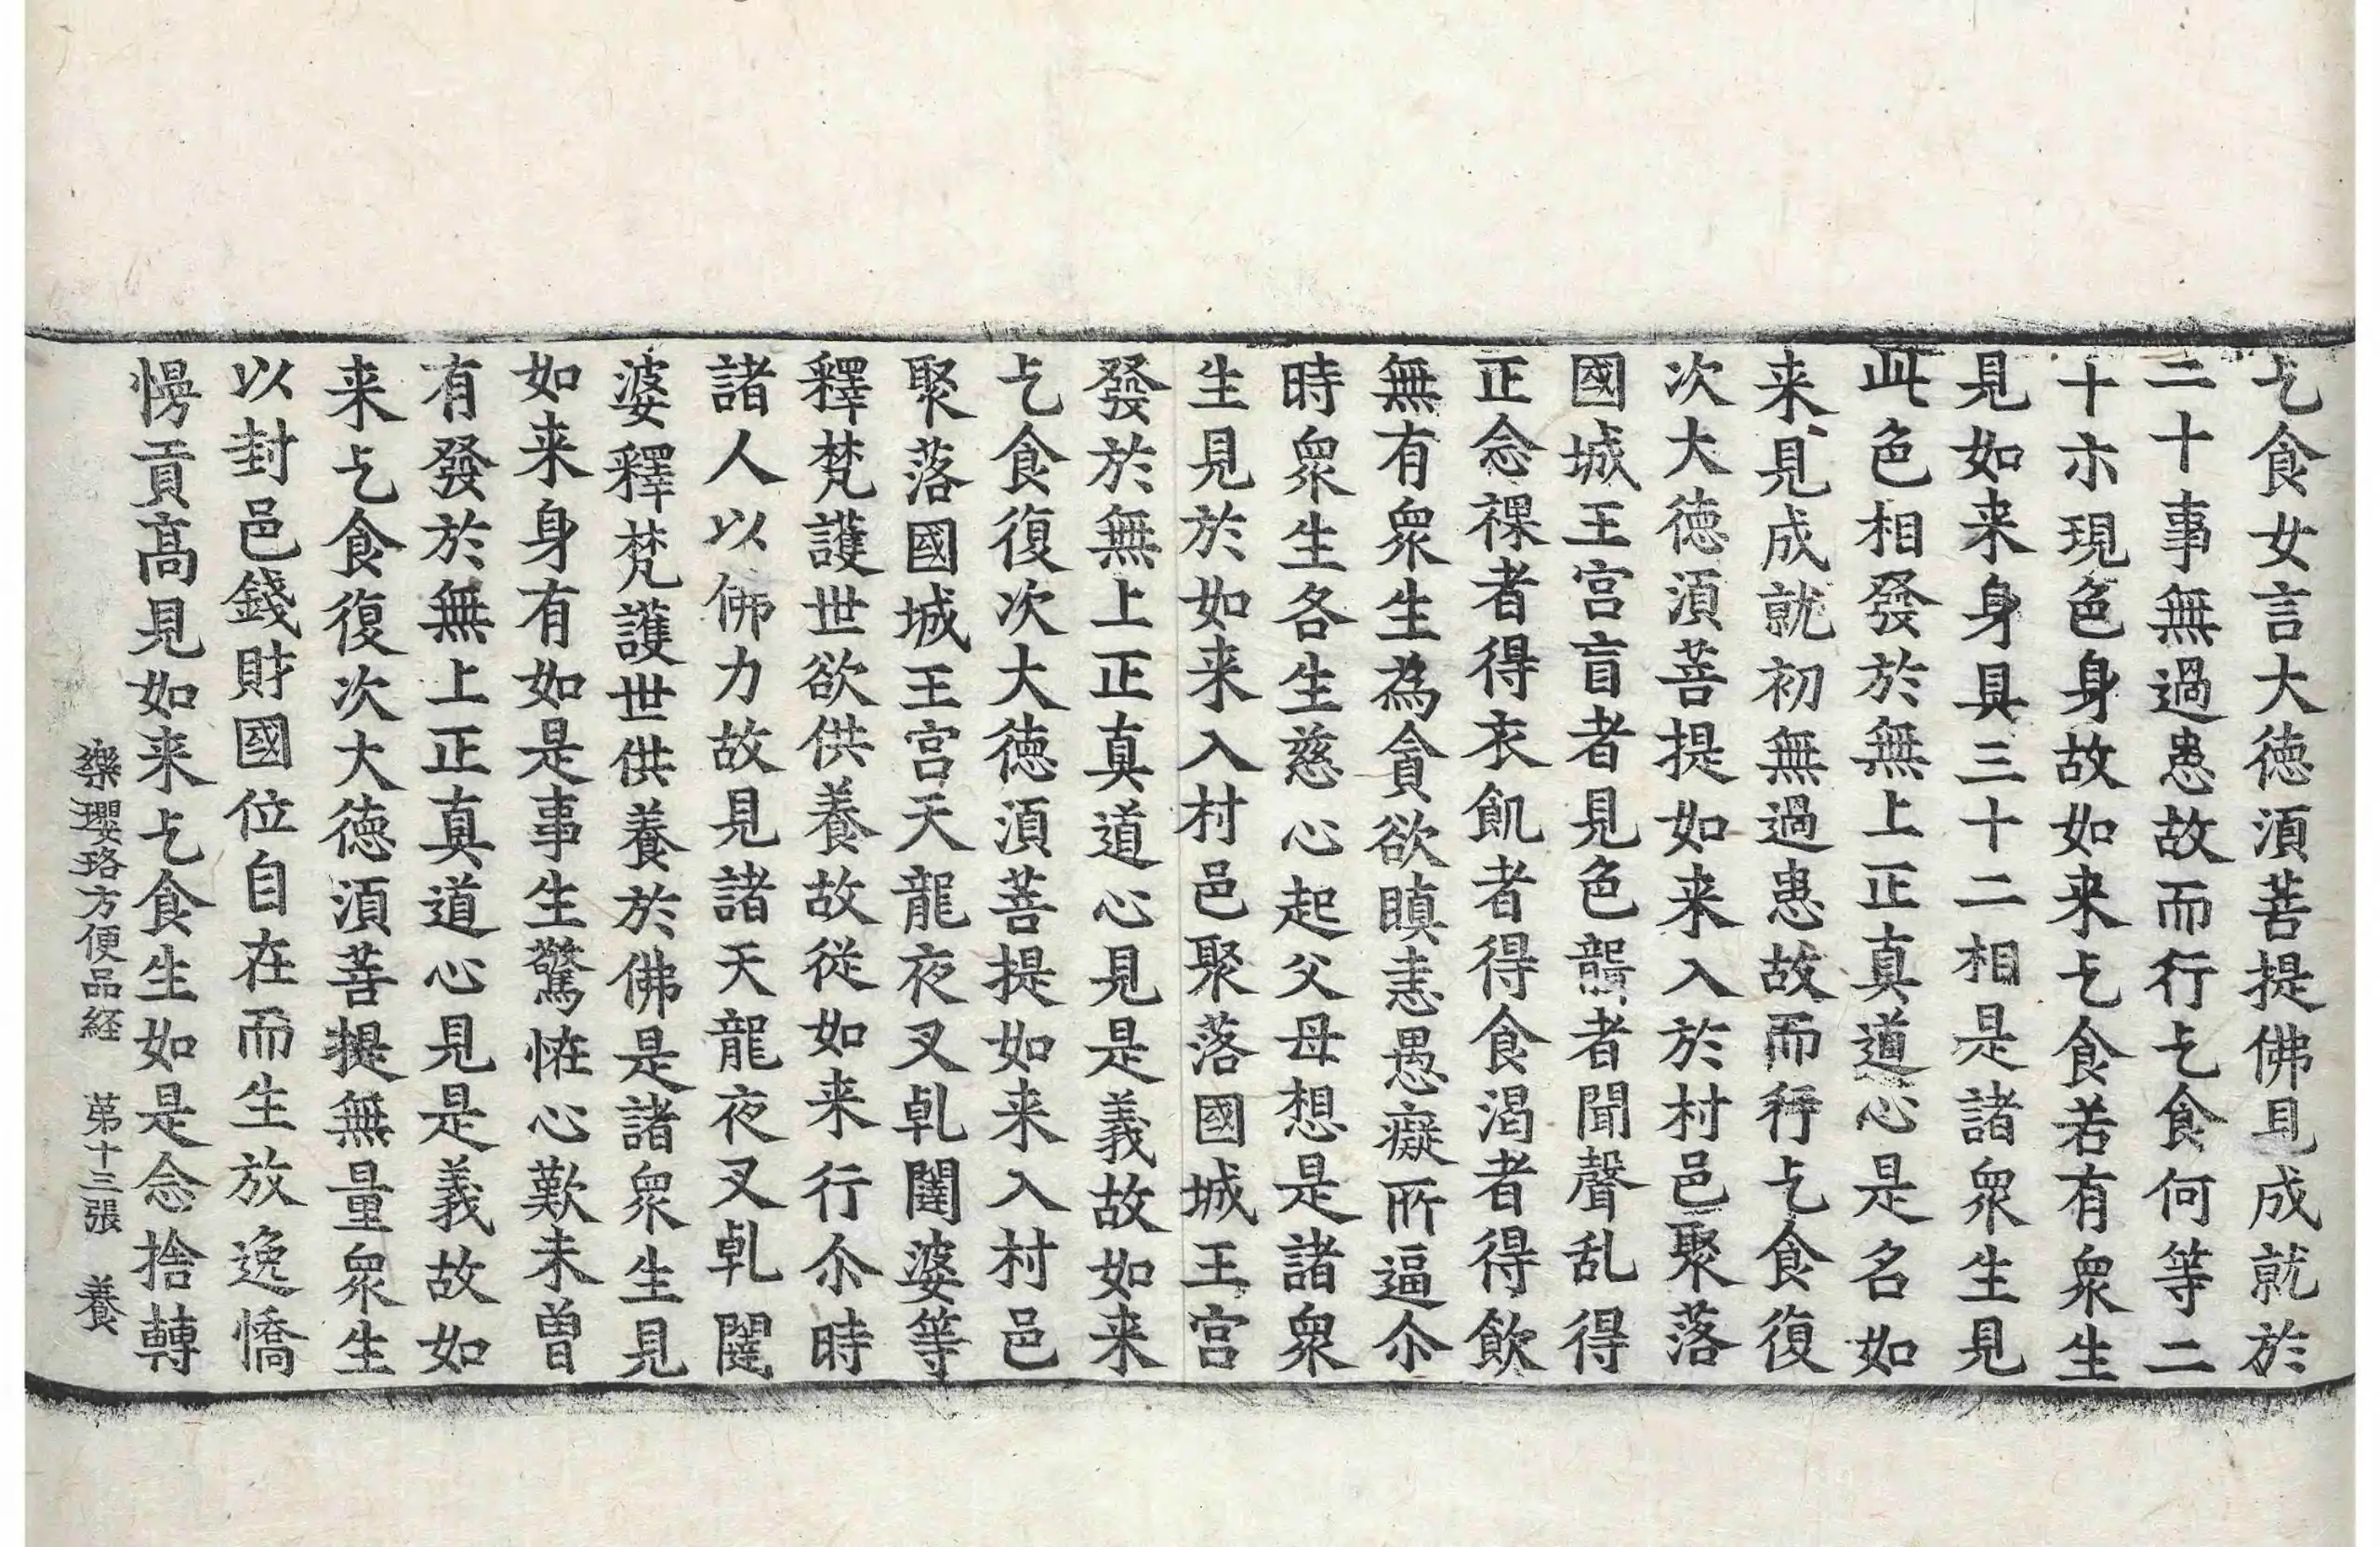 乞食女言大徳湏菩提佛見成就於
二十事無過患故而行乞食何等二
十示現色身故如来乞食若有衆生
見如来身具三十二相是諸衆生見
此色相發於無上正真道心是名如
来見成就初無過患故而行乞食復
次大徳湏菩提如来入於村邑聚落
國城王宫盲者見色聾者聞聲乱得
正念裸者得衣飢者得食渴者得飲
無有衆生為貪欲瞋恚愚癡所逼尒
時衆生各生慈心起父母想是諸衆
生見於如来入村邑聚落國城王宫
發於無上正真道心見是義故如来
乞食復次大徳湏菩提如来入村邑
聚落國城王宫天龍夜叉乹闥婆等
釋梵護世欲供養故従如来行尒時
諸人以佛力故見諸天龍夜叉乹闥
婆釋梵護世供養於佛是諸衆生見
如来身有如是事生驚恠心歎未曽
有發於無上正真道心見是義故如
来乞食復次大徳湏菩提無量衆生
以封邑錢財國位自在而生放逸憍
慢貢髙見如来乞食生如是念捨轉
樂瓔珞方便品経　第十三張　養